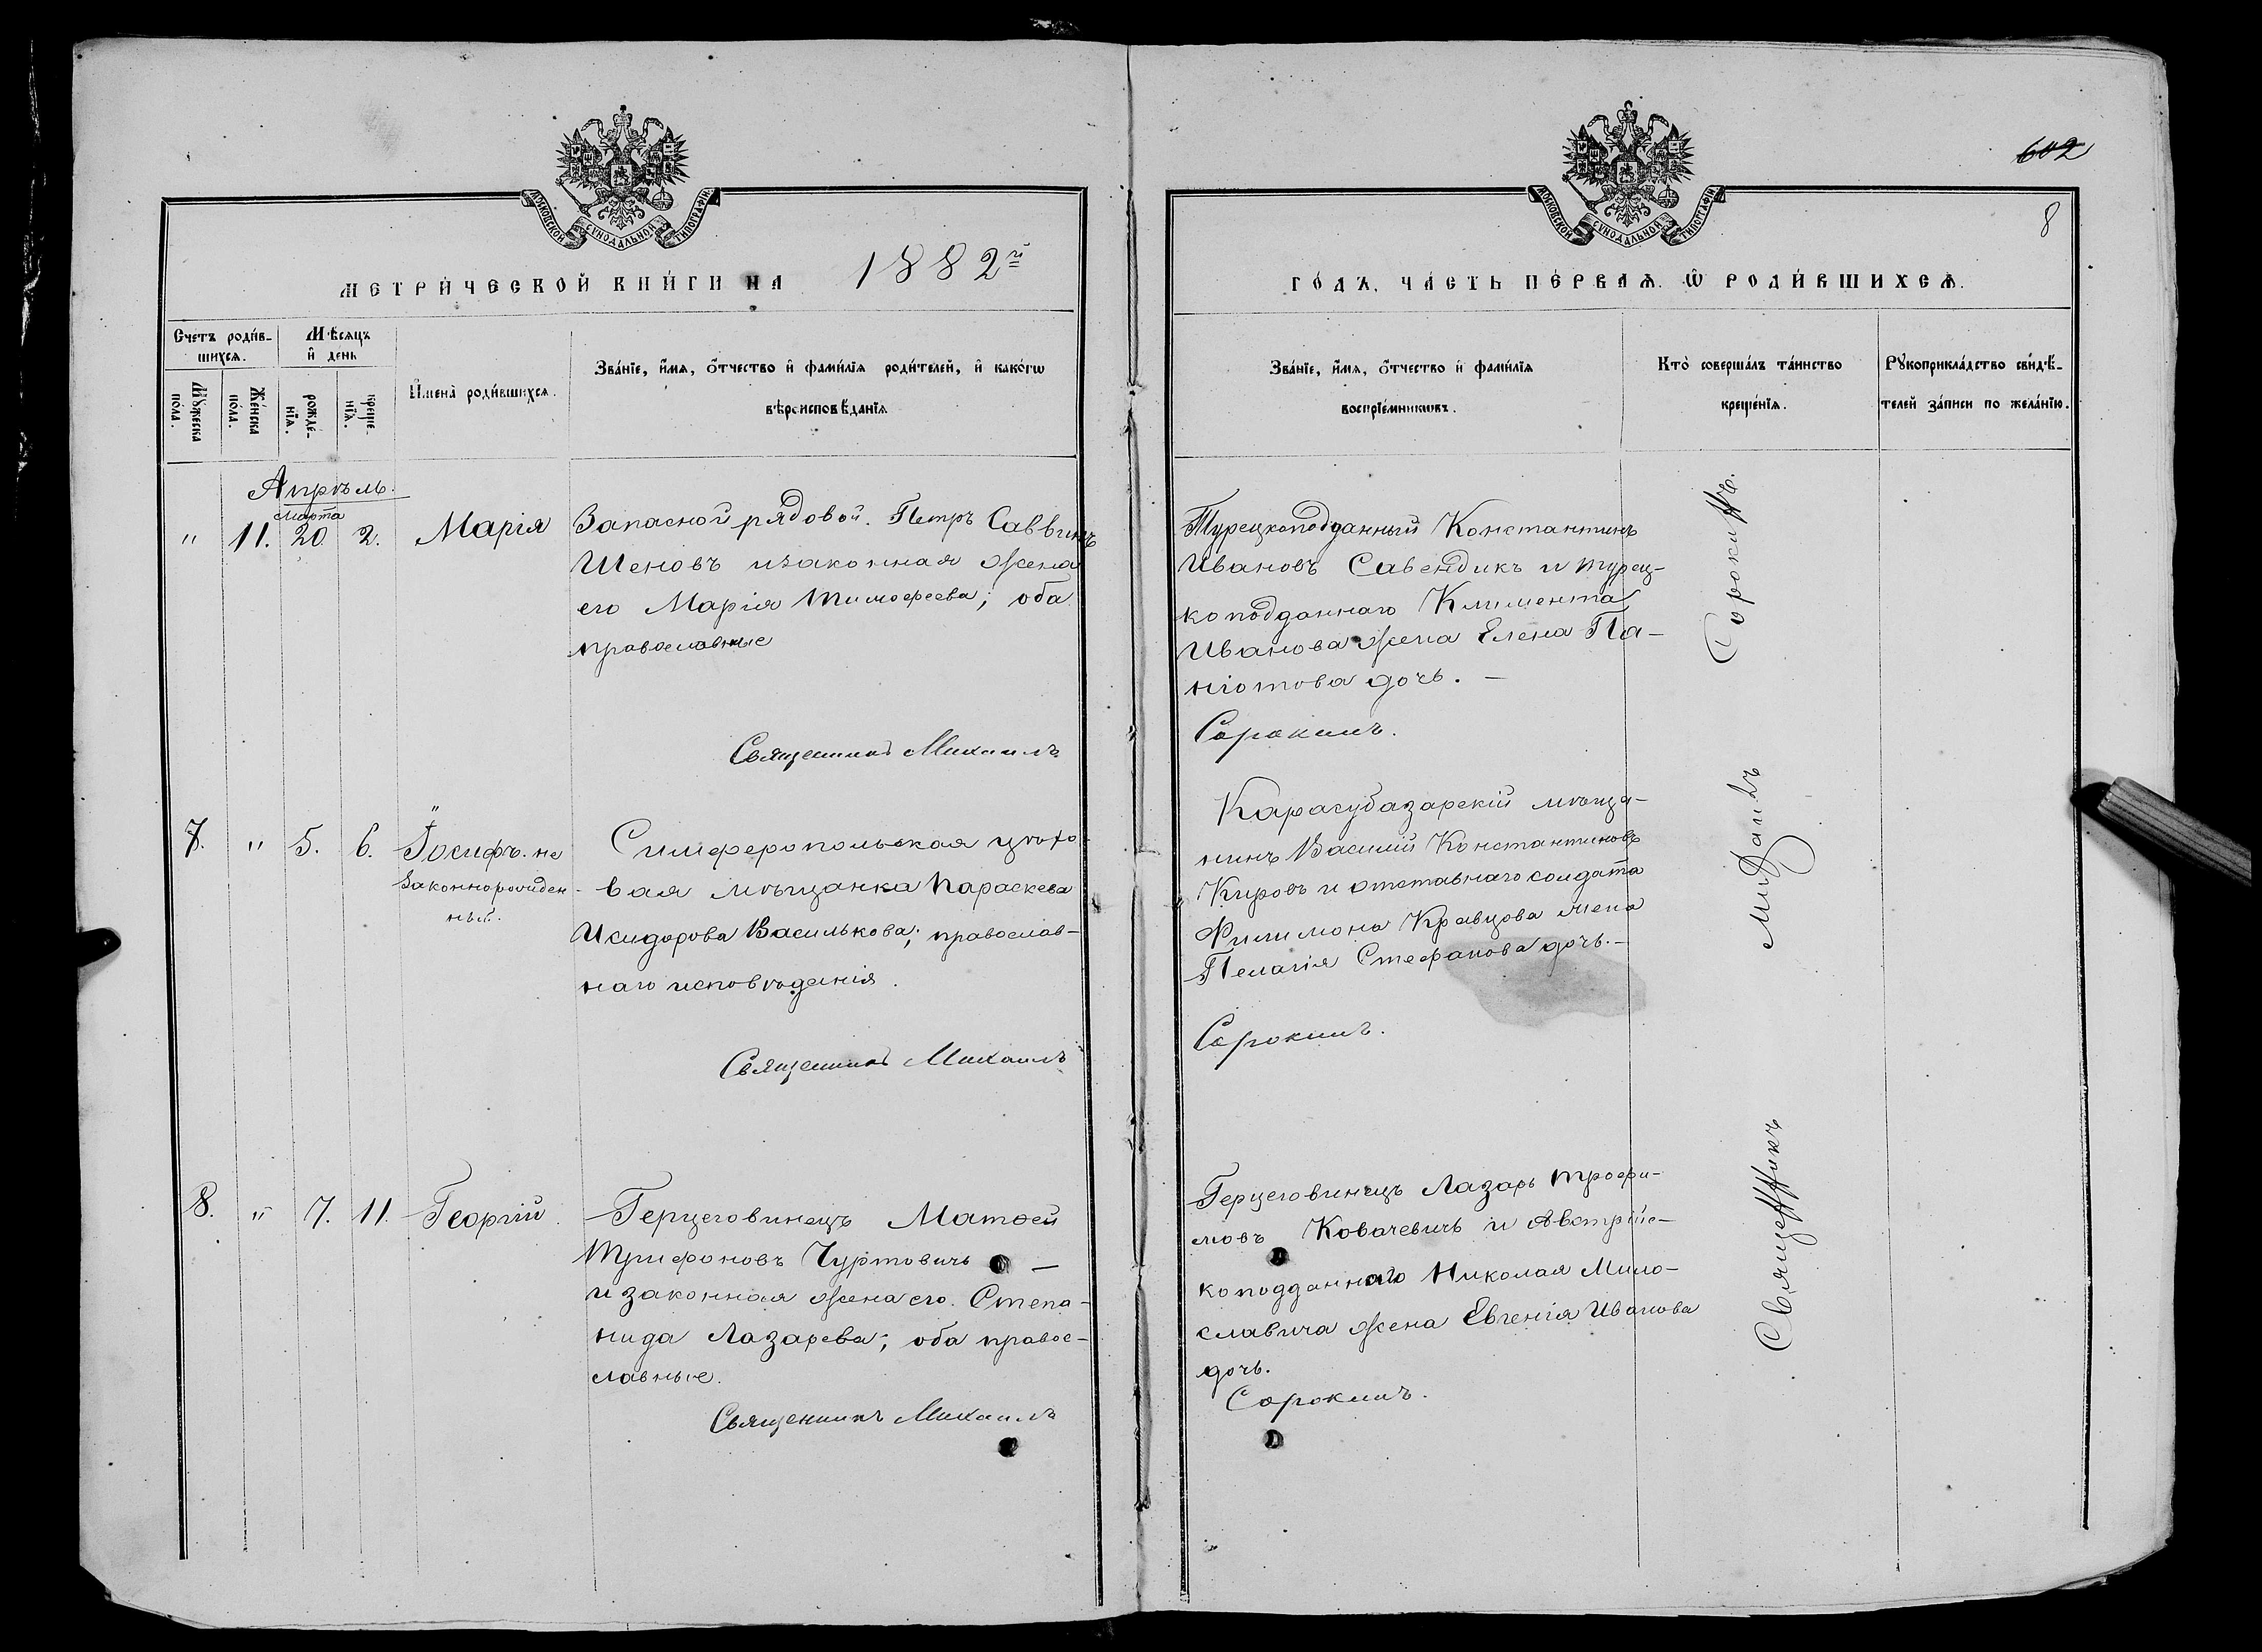 602
8
МОСКОВСКОЙ СѴНОДАЛЬНОЙ ТИПОГРАФІИ
МОСКОВСКОЙ СѴНОДАЛЬНОЙ ТИПОГРАФІИ
МЕТРИ́ЧЕСКОЙ КНИ́ГИ НА 1882й
ГО́ДЪ, ЧА́СТЬ ПЕ́РВАѦ. Ѡ РОДИ́ВШИХСѦ.
Счетъ роди́в-
шихсѧ.
Мꙋ́жеска
по́ла.
Же́нска
по́ла.
Мѣсѧцъ
и҆ день
рожде́-
нїѧ.
креще́-
нїѧ.
И҆мена̀ роди́вшихсѧ.
Зва́нїе, и҆́мѧ, ѻ҆́тчество и҆ фами́лїѧ роди́телей, и҆ како́гѡ
вѣроисповѣ́данїѧ
Зва́нїе, и҆́мѧ, ѻ҆́тчество и҆ фами́лїѧ
воспрїе́мникѡвъ.
Кто̀ соверша́лъ та́инство
креще́нїѧ.
Рꙋкоприкла́дство свидѣ́-
телей за́писи по жела́нїю.
Апрѣль.
Марта
" 11. 20. 2. Марія
Запасной рядовой. Петръ Саввинъ
Шеновъ и законная жена
его Марія Тимоѳеева; оба
православные
Священникъ Михаилъ
Турецкоподданный Константинъ
Ивановъ Савендикъ и турец-
коподданнаго Климента
Иванова жена Елена Па-
ніотова дочь. —
Сорокинъ.
7. " 5. 6. Іосифъ. не
законнорожден-
ный.
Симферопольская цѣхо-
вая мѣщанка Параскева
Исидорова Василькова; православ-
наго исповѣданія.
Священникъ Михаилъ
Карасубазарскій мѣща-
нинъ Василій Константиновъ
Кировъ и отставнаго солдата
Филимона Кравцова жена
Пелагія Стефанова дочь. —
Сорокинъ.
8. " 7. 11. Георгій.
Герцеговинецъ Матѳей
Трифоновъ Чуртовичъ —
и законная жена его. Степа-
нида Лазарева; оба правос-
лавные.
Священникъ Михаилъ
Герцеговинецъ Лазарь Трофи-
мовъ Ковачевичъ и Австрійс-
коподданнаго Николая Мило-
славича жена Евгенія Иванова
дочь.
Сорокинъ.
Священникъ Михаилъ Сорокинъ.